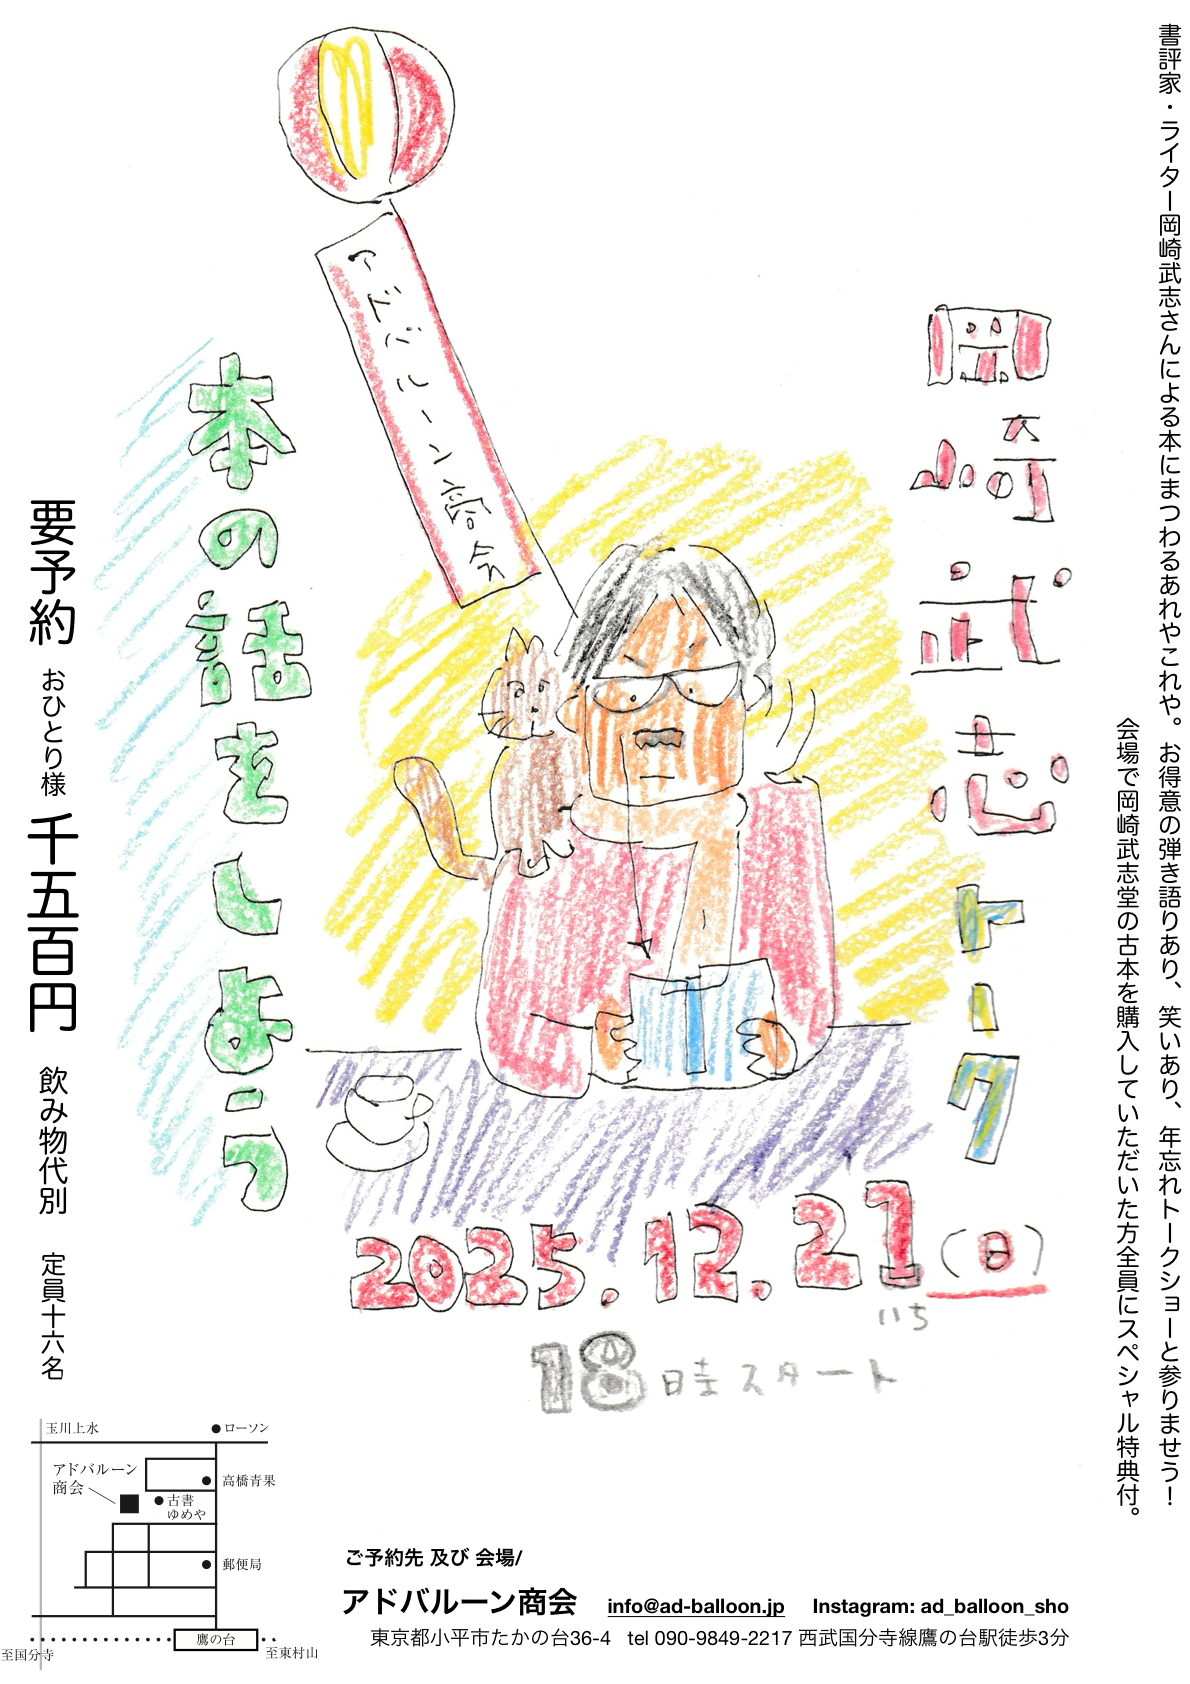 書評家・ライター岡崎武志さんによる本にまつわるあれやこれや。お得意の弾き語りあり、笑いあり、年忘れトークショーと参りませう！
会場で岡崎武志堂の古本を購入していただいた方全員にスペシャル特典付。
岡崎武志トーク
アドバルーン商会
本の話をしよう
要予約 おひとり様 千五百円 飲み物代別 定員十六名
2025.12.21(日)
いち
18時スタート
玉川上水
ローソン
アドバルーン
商会
高橋青果
古書
ゆめや
郵便局
鷹の台
至国分寺
至東村山
ご予約先 及び 会場/
アドバルーン商会 info@ad-balloon.jp Instagram: ad_balloon_sho
東京都小平市たかの台36-4 tel 090-9849-2217 西武国分寺線鷹の台駅徒歩3分